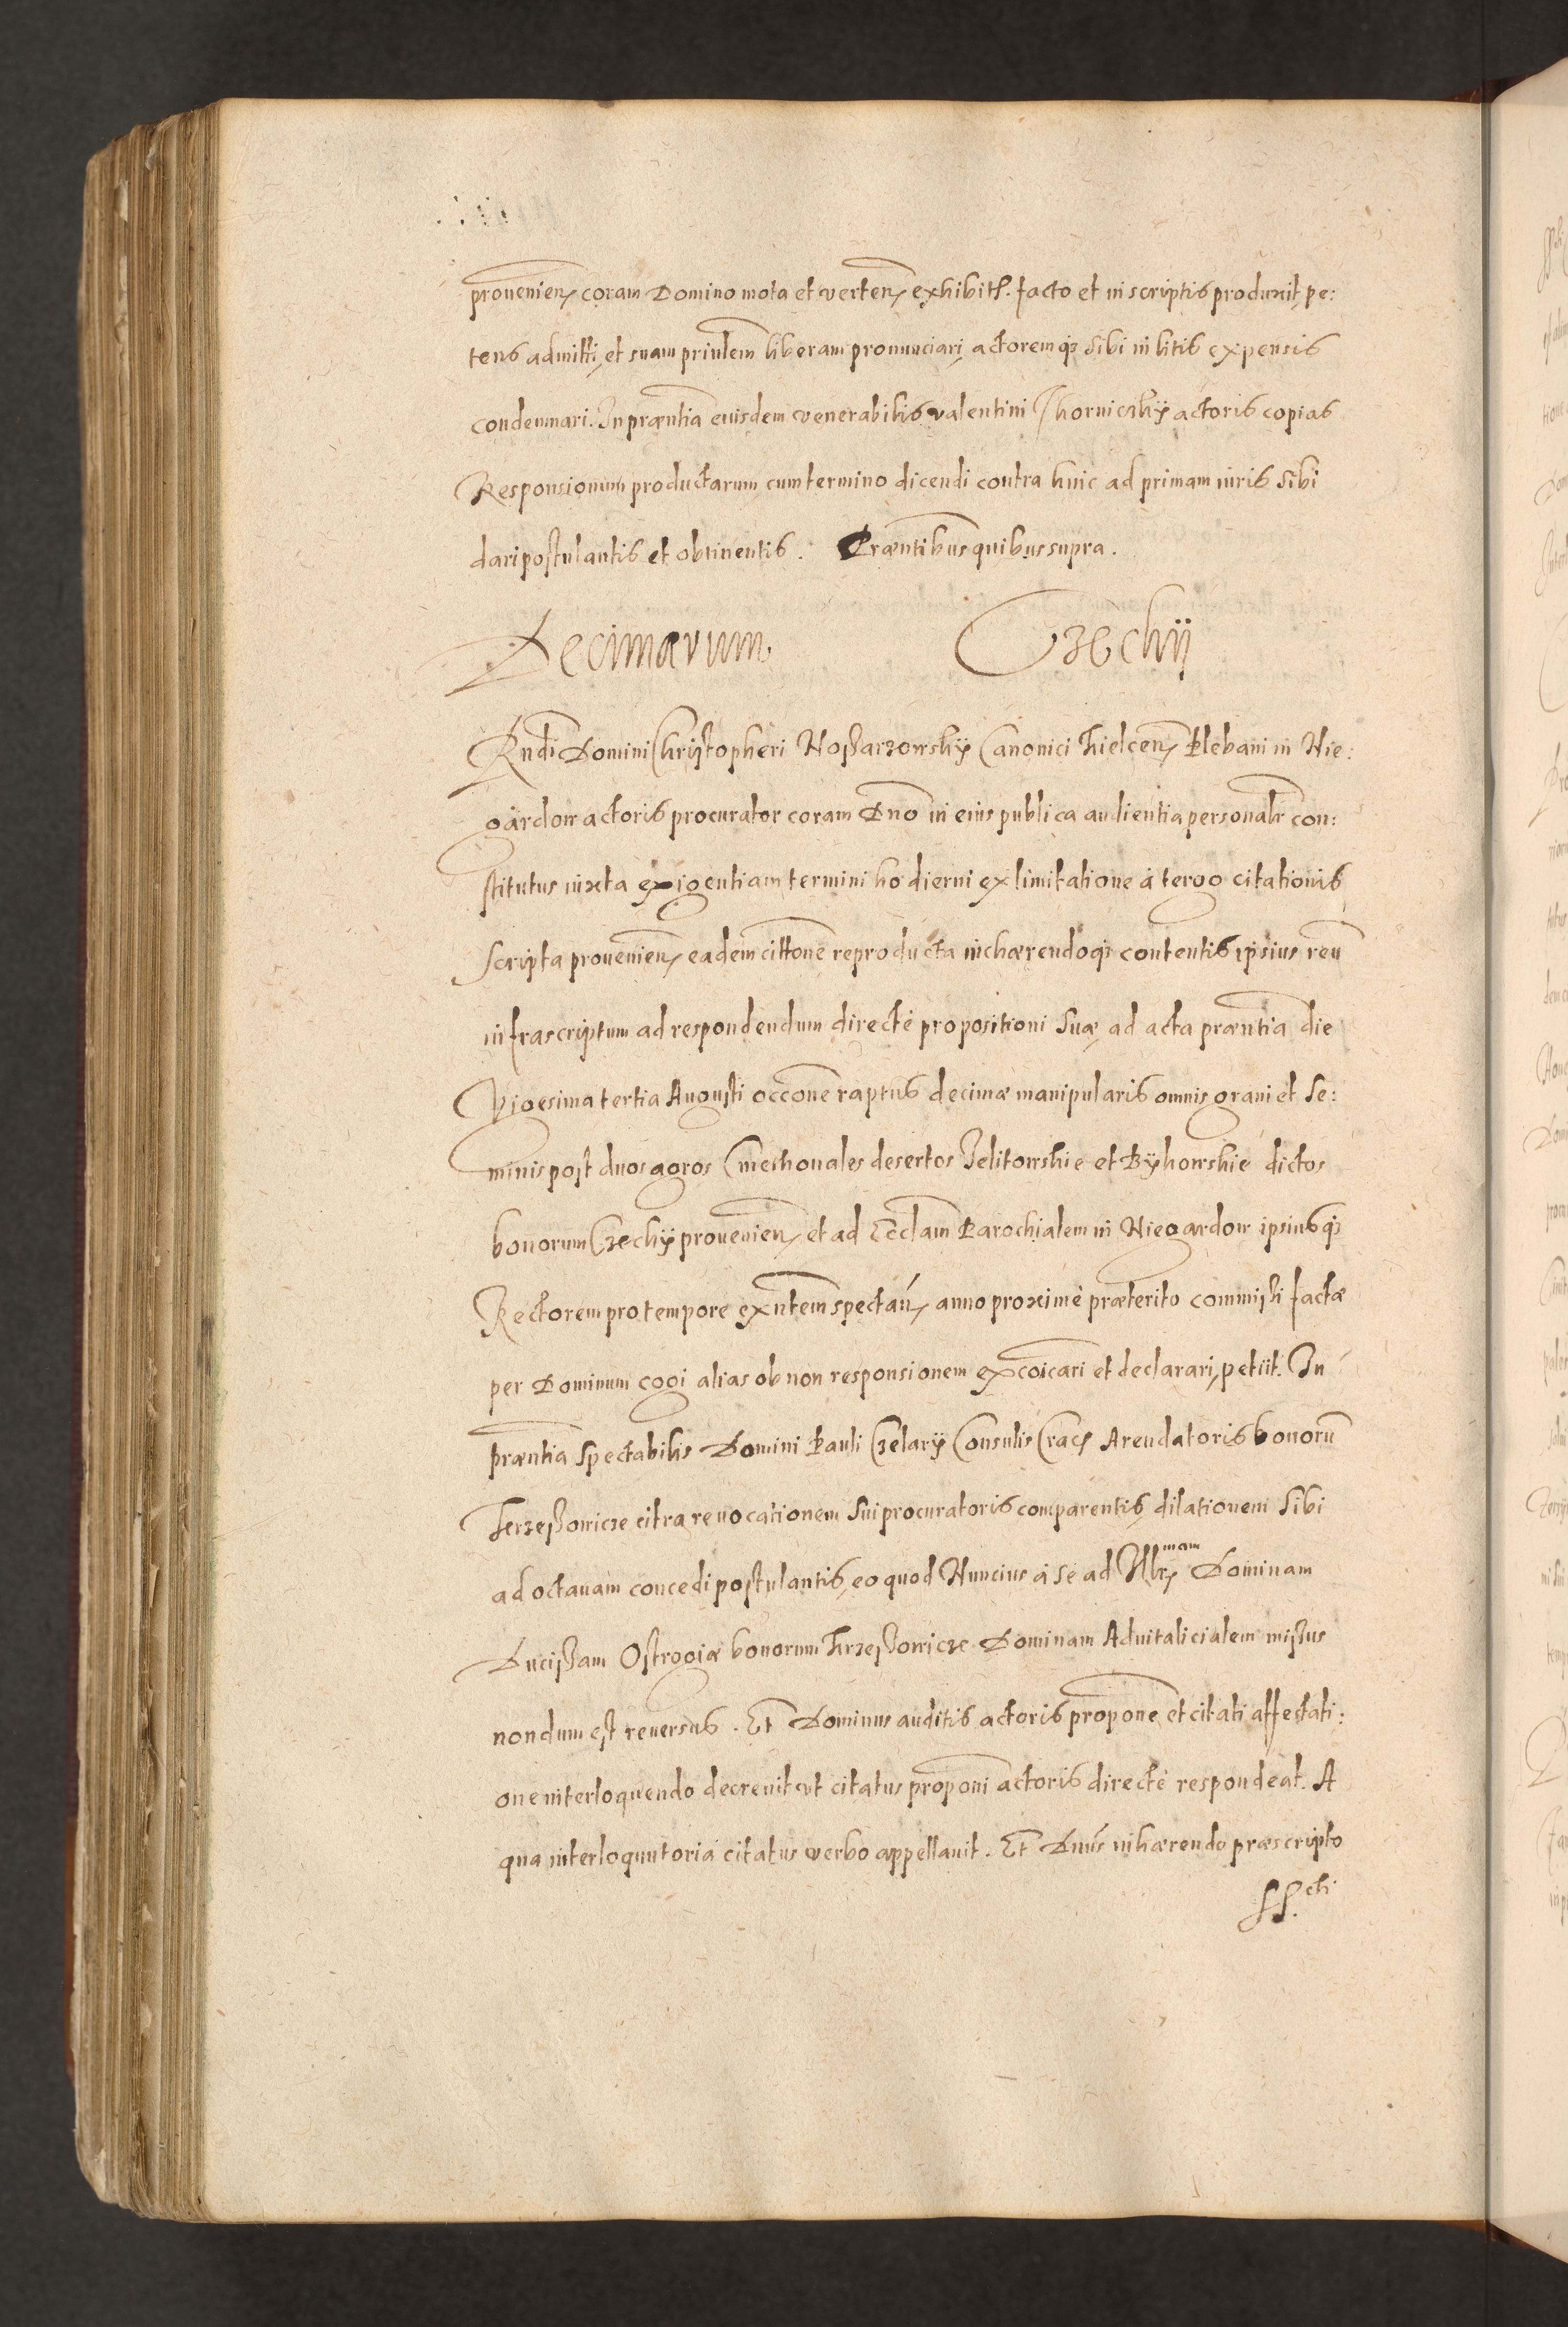 prouenien coram Domino mota et verten exhibit. facto et in scriptis produxit, pe:
tens admitti, et suam prinlem liberam pronunciari, actoremq3 sibi in litis expensis
condemnari. In præntia eiusdem venerabilis valentini Thorniczkij actoris copias
Responsionum productarum cum termino dicendi contra hinc ad primam iuris sibi
dari postulantis et obtinentis. Præntibus quibus supra.
Decimarum Czechij
Rndi Domini Christopheri Noßarzowskij Canonici Kielcen Plebani in Nie:
gardow actoris procurator coram Dno in eius publica audientia personalr con:
stitutus iuxta exigentiam termini hodierni ex limitatione à tergo citationis
scripta prouenien eadem cittone reproducta inchærendoq3 contentis ipsius reu
infrascriptum ad respondendum directè propositioni suæ, ad acta præntia die
Vigesima tertia Augusti occone raptus decimæ manipularis omnis grani et Se:
minis post duos agros Cmethonales desertos Jelitowskie et Bÿkowskie dictos
bonorum Czechij prouenien et ad Ecclam Parochialem in Niegardow ipsiusq3
Rectorem pro tempore exntem spectan anno proximè præterito commissi factæ
per Dominum cogi alias ob non responsionem excoicari et declarari, petiit. In
præntia Spectabilis Domini Pauli Czelarij Consulis Crac Arendatoris bonoru
Krzeßowicze citra reuocationem sui procuratoris comparentis, dilationem sibi
ad octauam concedi postulantis, eo quod Nuncius à se ad Illr mam Dominam
Ducissam Ostrogiæ bonorum Krzeßowicze Dominam Aduitalicialem missus
nondum est reuersus. Et Dominus auditis actoris propone et citati affectati:
one interloquendo decreuit vt citatus proponi actoris directè respondeat. A
qua interloquutoria citatus verbo appellauit. Et Dnus inhærendo præscripto
SS. cti